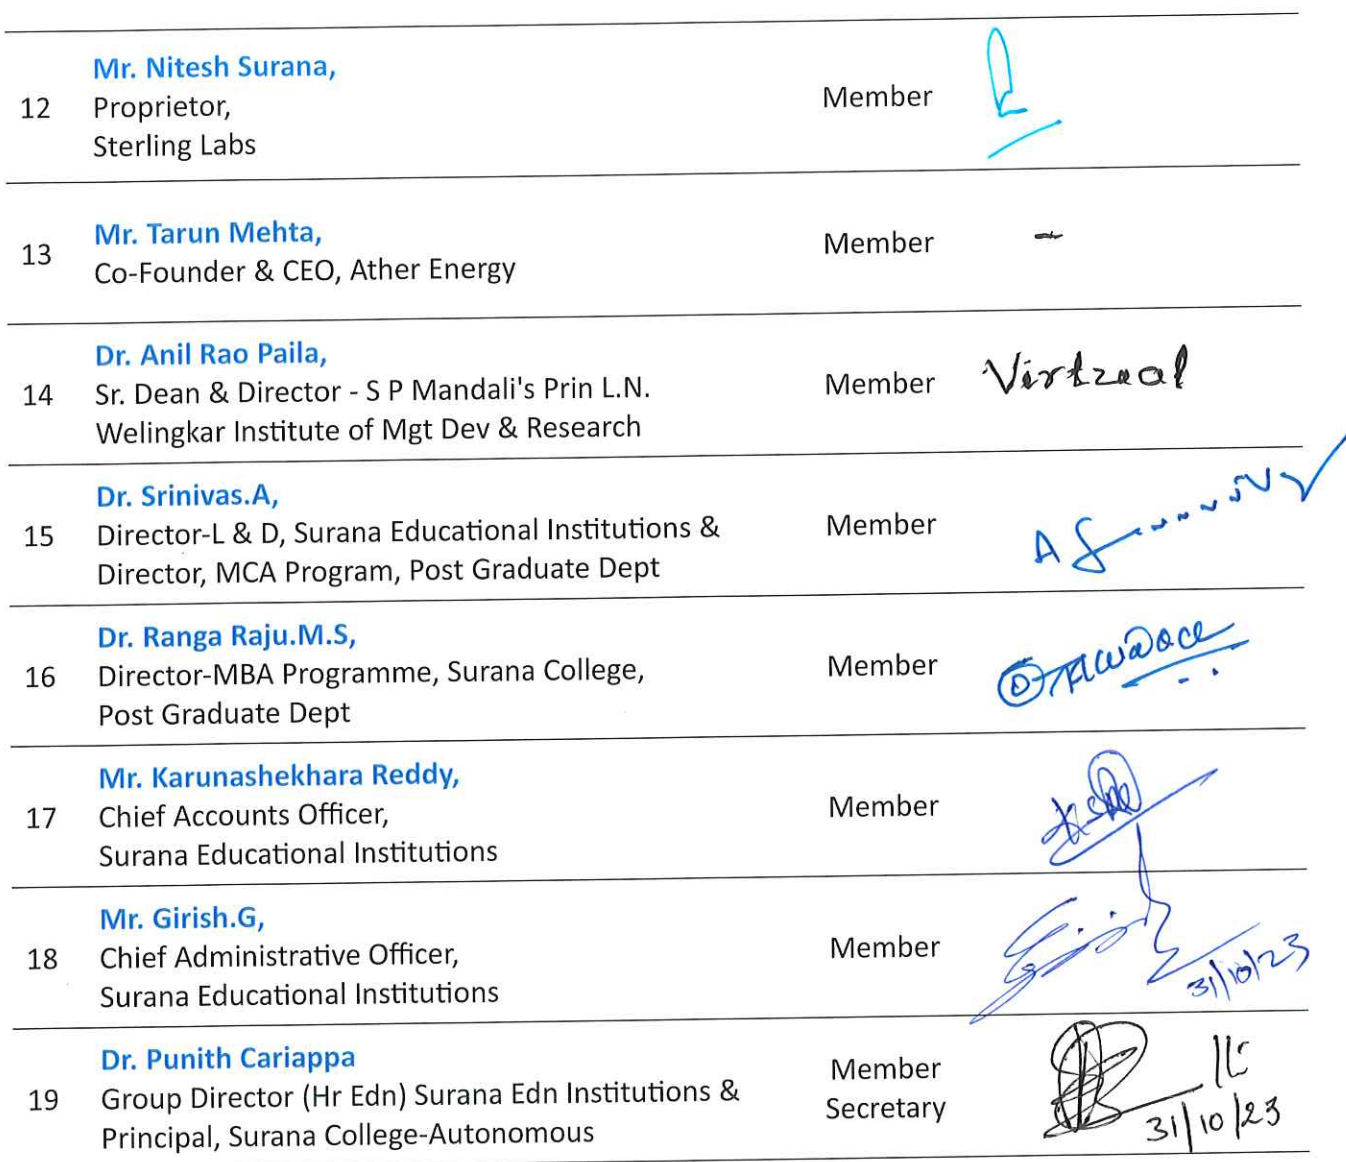 12
Mr. Nitesh Surana,
Proprietor,
Sterling Labs
Member
13
Mr. Tarun Mehta,
Co-Founder & CEO, Ather Energy
Member
-
14
Dr. Anil Rao Paila,
Sr. Dean & Director - S P Mandali's Prin L.N.
Welingkar Institute of Mgt Dev & Research
Member
Virtual
15
Dr. Srinivas.A,
Director-L & D, Surana Educational Institutions &
Director, MCA Program, Post Graduate Dept
Member
16
Dr. Ranga Raju.M.S,
Director-MBA Programme, Surana College,
Post Graduate Dept
Member
17
Mr. Karunashekhara Reddy,
Chief Accounts Officer,
Surana Educational Institutions
Member
18
Mr. Girish.G,
Chief Administrative Officer,
Surana Educational Institutions
Member
31/10/23
19
Dr. Punith Cariappa
Group Director (Hr Edn) Surana Edn Institutions &
Principal, Surana College-Autonomous
Member
Secretary
31/10/23